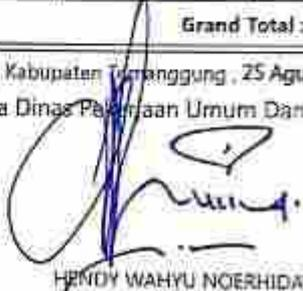 Grand Total :
Kabupaten Temanggung , 25 Agu
a Dinas Pekerjaan Umum Dan
HENDY WAHYU NOERHIDA